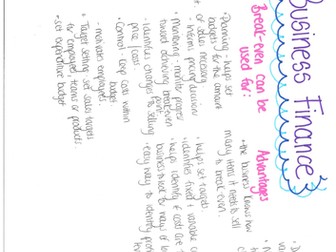 Business Finance
Break-even can be
used for:
• Planning - helps set
budgets for the amount
of sales necessary
• informs pricing decision
• Monitoring - monitor progress
toward achieving breakeven
point
• identifies changes to selling
price/cost
• Control - keep costs within
budget
• motivates employees
• Target setting - set sales targets
for employees, teams or products
• set expenditure budget
Advantages
• the business knows how
many items it needs to sell
to break even.
• helps set targets
• identifies fixed & variable
• helps identify if costs are
business to look for ways of
• easy way to identify